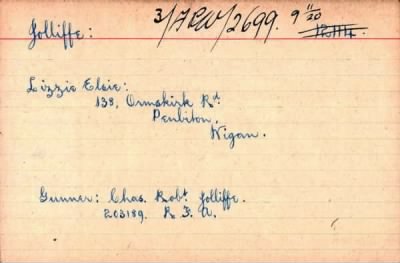 Jolliffe: 3/ARW/2699. 9 11/20
Lizzie Elsie:
138, Ormskirk Rd.
Penbiton,
Wigan.
Gunner: Chas. Robt. Jolliffe.
203189. R. F. A.